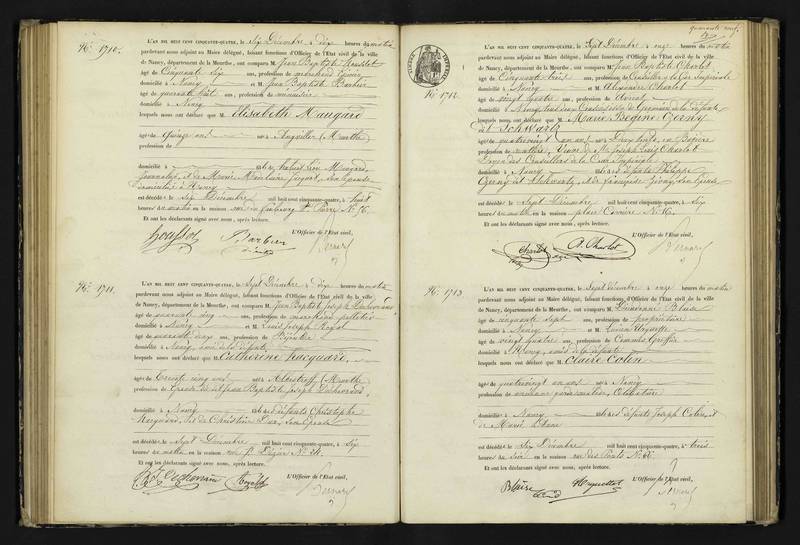 Nº 1710.
L'AN MIL HUIT CENT CINQUANTE-QUATRE, le Six Décembre à dix heures du matin
pardevant nous adjoint au Maire délégué, faisant fonctions d'Officier de l'État civil de la ville
de Nancy, département de la Meurthe, ont comparu M. Jean Baptiste Housslot
âgé de Cinquante Six ans, profession de marchand
domicilié à Nancy et M. Jean Baptiste Barbier
âgé de quarante huit ans, profession de menuisier
domicilié à Nancy
lesquels nous ont déclaré que M. Elisabeth Maugard
âgée de Quinze ans née à Angviller (Meurthe)
profession de
domiciliée à
Journalier, et de Marie Madelaine Jacquot, son épouse
domiciliés à Nancy
est décédée le Six Décembre mil huit cent cinquante-quatre, à huit
heures du matin en la maison faubourg St Pierre Nº 76.
Et ont les déclarants signé avec nous, après lecture.
L'Officier de l'État civil,
Barbier
Nº 1711.
L'AN MIL HUIT CENT CINQUANTE-QUATRE, le Sept Décembre à dix heures du matin
pardevant nous adjoint au Maire délégué, faisant fonctions d'Officier de l'État civil de la ville
de Nancy, département de la Meurthe, ont comparu M. Jean Baptiste Joseph
âgé de quarante cinq ans, profession de marchand pelletier
domicilié à Nancy et M. Louis Joseph
âgé de quarante deux ans, profession de Bijoutier
domicilié à Nancy, amis de la défunte
lesquels nous ont déclaré que Catherine Karquard,
âgée de Trente cinq ans née à Albestroff (Meurthe)
profession de Jean Baptiste Joseph
domiciliée à Nancy défunts Christophe
Karquard, et de Christine son épouse
est décédée le Sept Décembre mil huit cent cinquante-quatre, à Six
heures du matin en la maison rue St Dizier Nº 34.
Et ont les déclarants signé avec nous, après lecture.
L'Officier de l'État civil,
Quarante neuf
Nº 1712.
L'AN MIL HUIT CENT CINQUANTE-QUATRE, le Sept Décembre à onze heures du matin
pardevant nous adjoint au Maire délégué, faisant fonctions d'Officier de l'État civil de la ville
de Nancy, département de la Meurthe, ont comparu M. Jean Baptiste Charlot
âgé de Cinquante trois ans, profession de Conseiller à la Cour Impériale
domicilié à Nancy et M. Alexandre Charlot
âgé de vingt quatre ans, profession de Avocat
domicilié à Nancy, de la défunte
lesquels nous ont déclaré que M. Marie Régine Gerny
de Schwartz
âgée de quatrevingt un ans née à en Bavière
profession de rentière, Veuve de Mr Joseph Charlot
Doyen des Conseillers de la Cour Impériale
domiciliée à Nancy défunts Philippe
Gerny de Schwartz, et de Françoise son épouse
est décédée le Sept Décembre mil huit cent cinquante-quatre, à Six
heures du matin en la maison place Carrière Nº 16.
Et ont les déclarants signé avec nous, après lecture.
L'Officier de l'État civil,
Charlot A. Charlot
Nº 1713
L'AN MIL HUIT CENT CINQUANTE-QUATRE, le Sept décembre à onze heures du matin
pardevant nous adjoint au Maire délégué, faisant fonctions d'Officier de l'État civil de la ville
de Nancy, département de la Meurthe, ont comparu M. Dieudonné Blaise
âgé de cinquante sept ans, profession de propriétaire
domicilié à Nancy et M. Lucien
âgé de vingt quatre ans, profession de Commis Greffier
domicilié à Nancy, amis de la défunte
lesquels nous ont déclaré que M. Claire Colin
âgée de quatrevingt un ans née à Nancy
profession de Célibataire
domiciliée à Nancy défunts Joseph Colin, et
de Marie
est décédée le Six Décembre mil huit cent cinquante-quatre, à trois
heures du soir en la maison rue des Ponts Nº 26
Et ont les déclarants signé avec nous, après lecture.
L'Officier de l'État civil,
Blaise